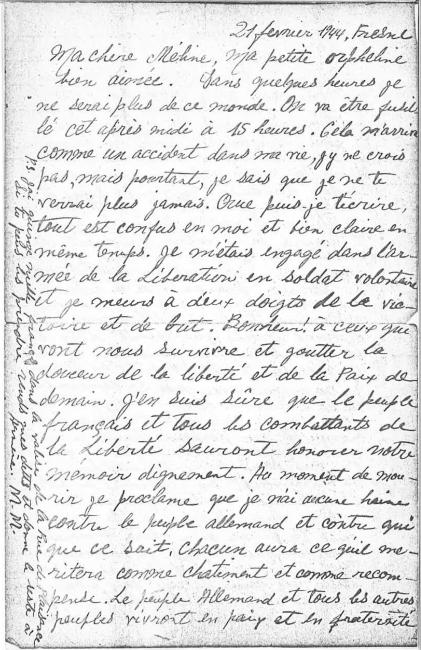 21 fevrier 1944, Fresne
Ma chère Méline, ma petite orpheline
bien aimée. Dans quelques heures je
ne serai plus de ce monde. On va être fusil
lé cet après midi à 15 heures. Cela m'arrive
comme un accident dans ma vie, j'y ne crois
pas, mais pourtant, je sais que je ne te
verrai plus jamais. Que puis-je t'écrire,
tout est confus en moi et bien claire en
même temps. Je m'étais engagé dans l'ar-
mée de la Libération en soldat volontaire
et je meurs à deux doigts de la vic-
toire et de but. Bonheur! à ceux qui
vont nous survivre et goutter la
douceur de la liberté et de la Paix de
demain. J'en suis sûre que le peuple
français et tous les combattants de
la Liberté sauront honorer notre
mémoir dignement. Au moment de mou-
rir je proclame que je n'ai aucune haine
contre le peuple allemand et contre qui
que ce soit, chacun aura ce qu'il me-
ritera comme chatiment et comme recom-
pense. Le peuple Allemand et tous les autres
peuples vivront en paix et en fraternité
P.S. J'ai quinze mille francs dans la valise de la rue de Plaisance
Si tu peus les prendre rends mes dettes et donne le reste à
Armène. M. M.